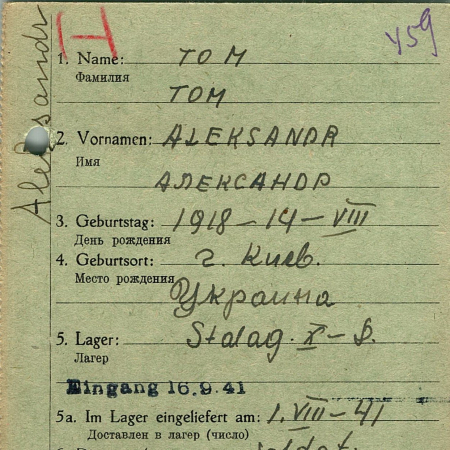 Aleksandr
H
459
1. Name: TOM
Фамилия
ТОМ
2. Vornamen: ALEKSANDR
Имя
АЛЕКСАНДР
3. Geburtstag: 1918-14-VIII
День рождения
4. Geburtsort: г. Киев.
Место рождения
Украина
5. Lager: Stalag. X-
Лагер
Eingang 16.9.41
5a. Im Lager eingeliefert am: 1.VIII-41
Доставлен в лагер (число)